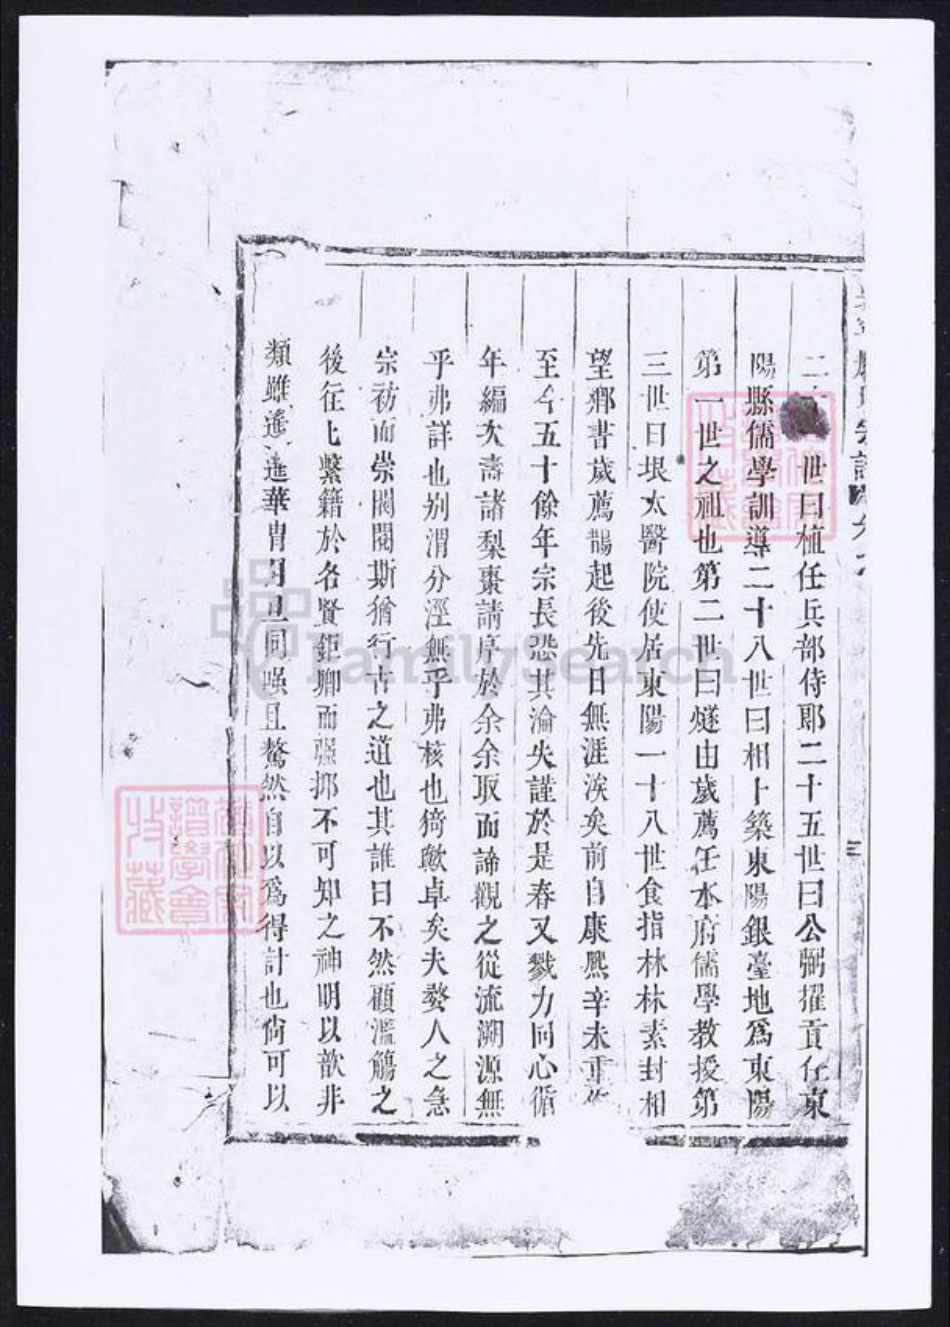 世曰植任兵部侍郎二十五世曰公弼擢貢任東
陽縣儒學訓導二十八世曰相卜築東陽銀臺地爲東陽
第一世之祖也第二世曰燧由歲薦任本府儒學教授第
三世曰垠太醫院使居東陽一十八世食指林林素封相
望鄉書歲薦鵲起後先日無涯涘矣前自康熙辛未重修
至今五十餘年宗長恐其淪失謹於是春又戮力同心循
年編次壽諸梨棗請序於余余取而諦觀之從流溯源無
乎弗詳也别渭分涇無乎弗核也猗歟卓矣夫婺人之急
宗祊而崇閥閱斯猶行古之道也其誰曰不然顧濫觴之
後往七繫籍於名賢鉅卿而强挪不可知之神明以歆非
類雖遙遙華胄同嗤且驁然自以爲得計也尚可以
宗譜
三
譜學會
收藏
FamilySearch